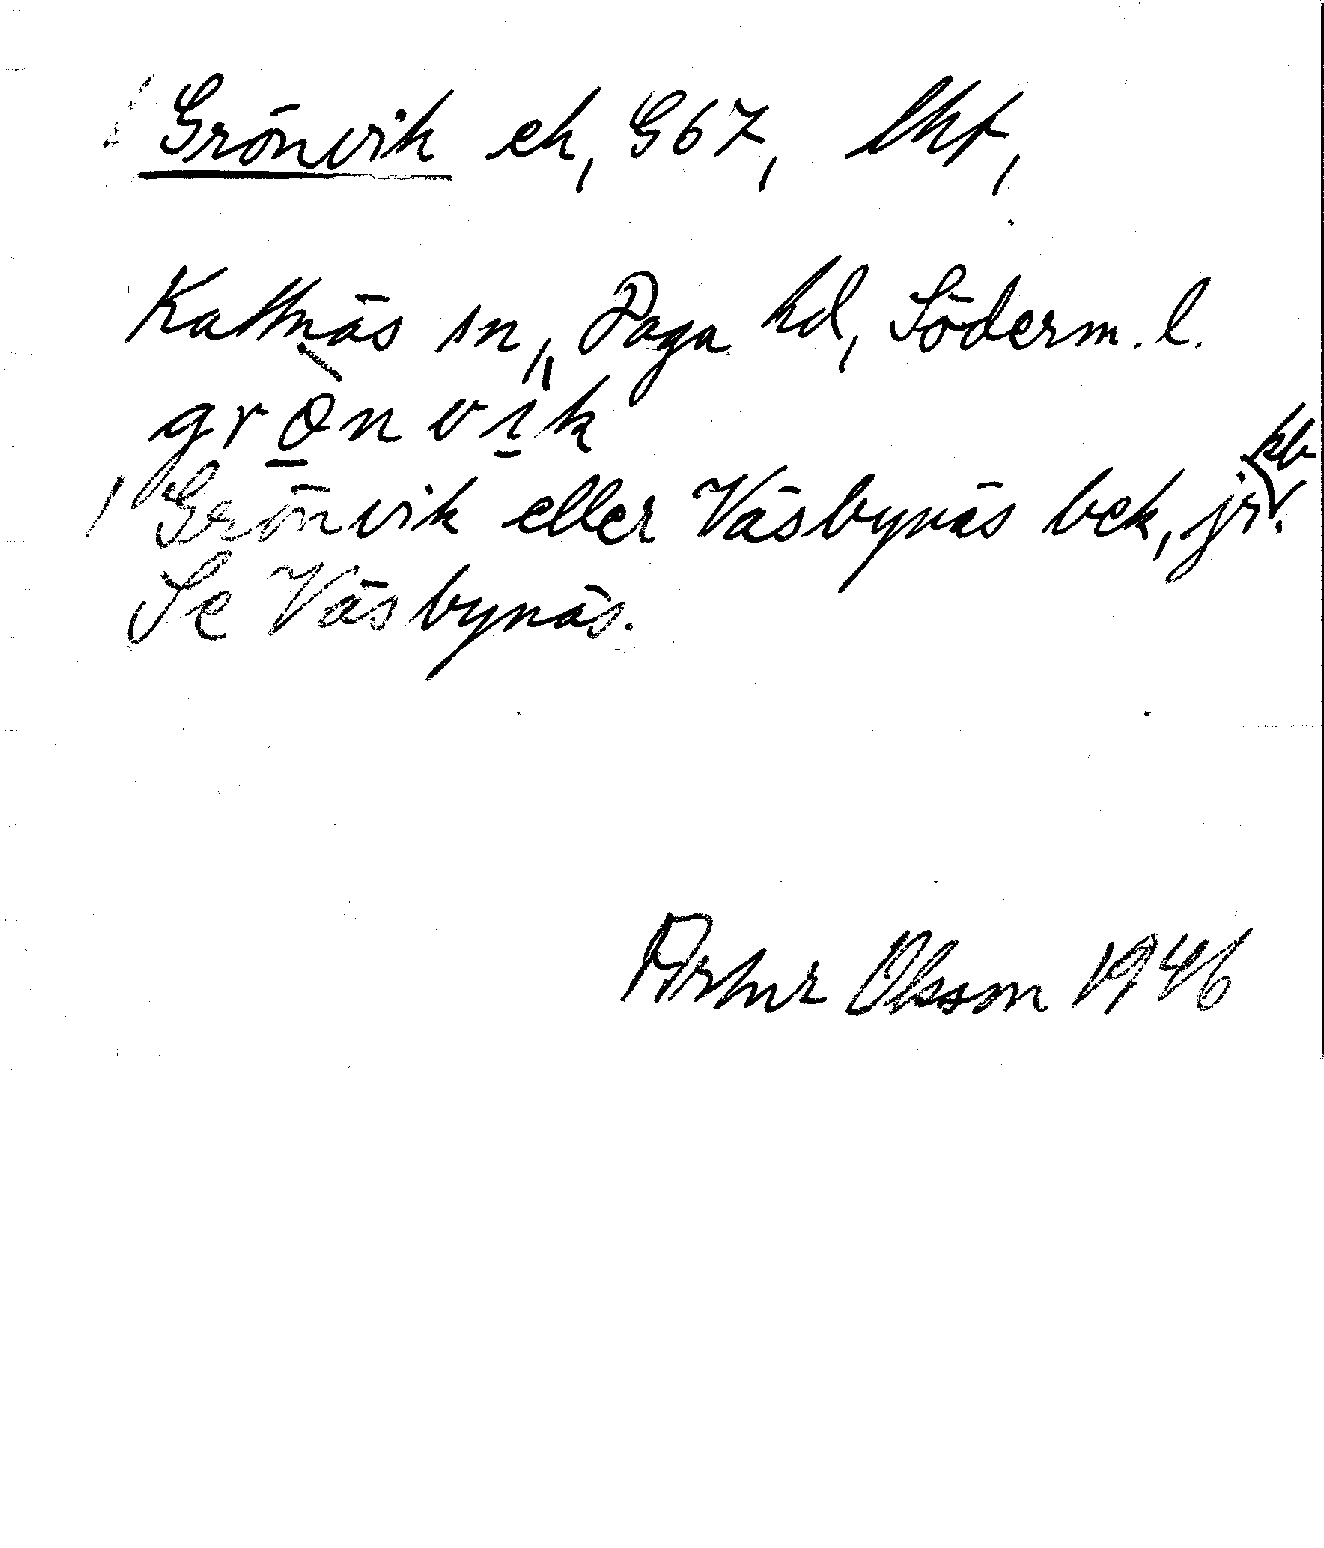 Grönvik ek, G67, lht,
Kattnäs sn, Daga hd, Söderm. l.
grö̲nvi̲k
Grönvik eller Väsbynäs bek, jr. kb
Se Väsbynäs.
Artur Olsson 1946